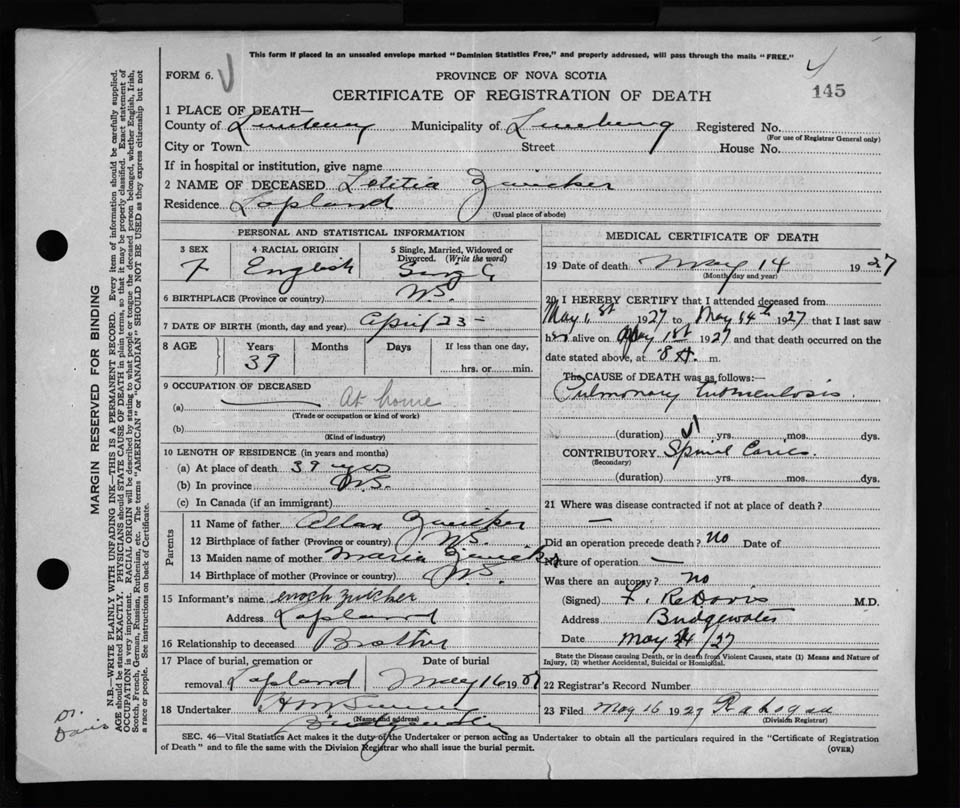 This form if placed in an unsealed envelope marked "Dominion Statistics Free," and properly addressed, will pass through the mails "FREE."
FORM 6.
PROVINCE OF NOVA SCOTIA
CERTIFICATE OF REGISTRATION OF DEATH
145
1 PLACE OF DEATH—
County of Lunenburg Municipality of Lunenburg Registered No.
(For use of Registrar General only)
City or Town Street House No.
If in hospital or institution, give name
2 NAME OF DECEASED Letitia Zwicker
Residence Lapland
(Usual place of abode)
PERSONAL AND STATISTICAL INFORMATION
3 SEX 4 RACIAL ORIGIN 5 Single, Married, Widowed or Divorced. (Write the word)
F English Single
6 BIRTHPLACE (Province or country) N.S.
7 DATE OF BIRTH (month, day and year) April 23 -
8 AGE Years Months Days If less than one day,
39 hrs. or min.
9 OCCUPATION OF DECEASED
(a) At home
(Trade or occupation or kind of work)
(b)
(Kind of industry)
10 LENGTH OF RESIDENCE (in years and months)
(a) At place of death 39 yrs
(b) In province N.S.
(c) In Canada (if an immigrant)
Parents
11 Name of father Allan Zwicker
12 Birthplace of father (Province or country) N.S.
13 Maiden name of mother Maria Zwicker
14 Birthplace of mother (Province or country) N.S.
15 Informant's name Enoch Zwicker
Address Lapland
16 Relationship to deceased Brother
17 Place of burial, cremation or removal Lapland Date of burial May 16 1927
18 Undertaker
(Name and address)
Bridgewater
MEDICAL CERTIFICATE OF DEATH
19 Date of death May 14 1927
(Month, day and year)
20 I HEREBY CERTIFY that I attended deceased from
May 1st 1927 to May 14th 1927 that I last saw
her alive on May 1st 1927 and that death occurred on the
date stated above, at 8 A. m.
The CAUSE of DEATH was as follows:—
Pulmonary tuberculosis.
(duration) yrs. mos. dys.
CONTRIBUTORY Spinal Caries.
(Secondary)
(duration) yrs. mos. dys.
21 Where was disease contracted if not at place of death? —
Did an operation precede death? no Date of
Nature of operation —
Was there an autopsy? no
(Signed) F. R. Davis M.D.
Address Bridgewater
Date May 14/27
State the Disease causing Death, or in death from Violent Causes, state (1) Means and Nature of Injury, (2) whether Accidental, Suicidal or Homicidal.
22 Registrar's Record Number
23 Filed May 16 1927
(Division Registrar)
SEC. 46—Vital Statistics Act makes it the duty of the Undertaker or person acting as Undertaker to obtain all the particulars required in the "Certificate of Registration
of Death" and to file the same with the Division Registrar who shall issue the burial permit. (OVER)
MARGIN RESERVED FOR BINDING
N.B.—WRITE PLAINLY WITH UNFADING INK—THIS IS A PERMANENT RECORD. Every item of information should be carefully supplied.
AGE should be stated EXACTLY. PHYSICIANS should STATE CAUSE OF DEATH in plain terms, so that it may be properly classified. Exact statement of
OCCUPATION is very important. RACIAL ORIGIN will be described by stating to what people or tongue the deceased person belonged, whether English, Irish,
Scotch, French, German, Russian, Ruthenian, etc. The terms "AMERICAN" or "CANADIAN" SHOULD NOT BE USED as they express citizenship but not
a race or people. See instructions on back of Certificate.
Dr. Davis